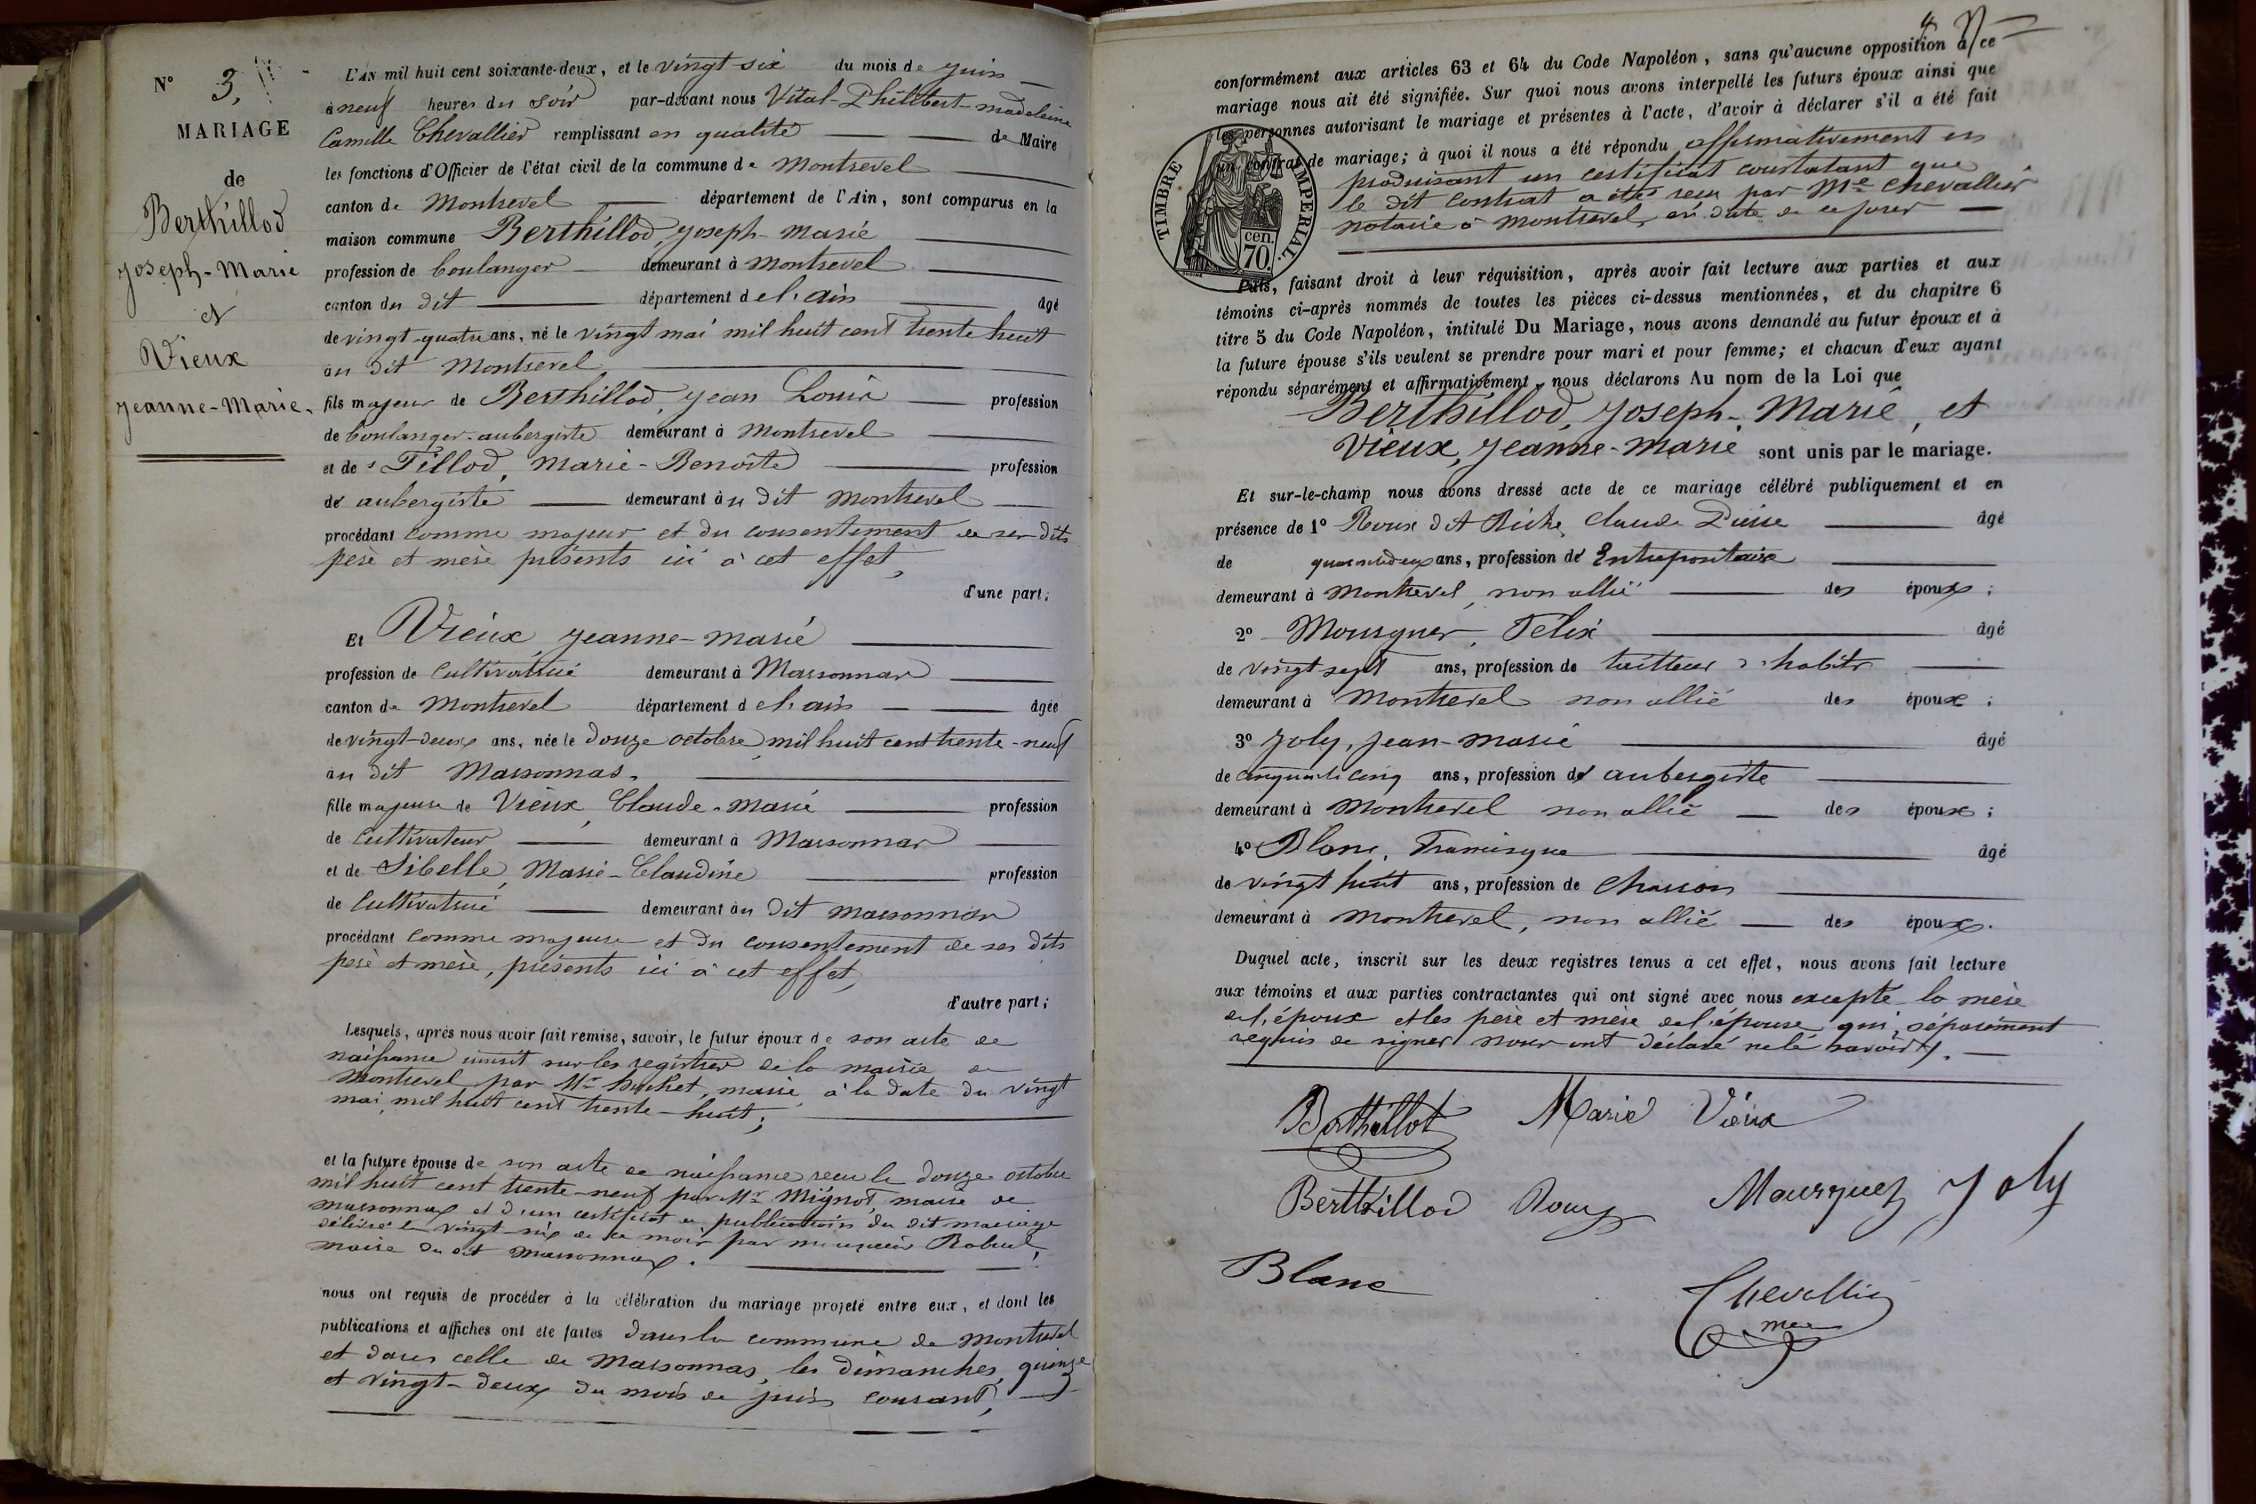 N° 3.
MARIAGE
de
Berthillod
Joseph-Marie
et
Vieux
Jeanne-Marie.
L'AN mil huit cent soixante-deux, et le vingt six du mois de juin
à neuf heures du soir par-devant nous Vital-Philibert-madeleine
Camille Chevallier remplissant en qualité de Maire
les fonctions d'Officier de l'état civil de la commune de Montrevel
canton de Montrevel département de l'Ain, sont comparus en la
maison commune Berthillod, Joseph-Marie
profession de boulanger demeurant à Montrevel
canton du dit département de l'ain âgé
de vingt-quatre ans, né le vingt mai mil huit cent trente huit
au dit Montrevel
fils majeur de Berthillod, Jean Louis profession
de boulanger-aubergiste demeurant à Montrevel
et de Tillod, Marie-Benoîte profession
d'aubergiste demeurant au dit Montrevel
procédant comme majeur et du consentement de ses dits
père et mère présents ici à cet effet,
d'une part;
Et Vieux, Jeanne-Marie
profession de Cultivatrice demeurant à Marsonnas
canton de Montrevel département de l'ain âgée
de vingt-deux ans, née le douze octobre mil huit cent trente-neuf
au dit Marsonnas.
fille majeure de Vieux, Claude-Marie profession
de Cultivateur demeurant à Marsonnas
et de Sibelle, Marie-Claudine profession
de Cultivatrice demeurant au dit Marsonnas
procédant comme majeure et du consentement de ses dits
père et mère, présents ici à cet effet,
d'autre part;
Lesquels, après nous avoir fait remise, savoir, le futur époux de son acte de
naissance inscrit sur les registres de la mairie de
Montrevel par Mr maire, à la date du vingt
mai mil huit cent trente-huit;
et la future épouse de son acte de naissance reçu le douze octobre
mil huit cent trente-neuf par Mr Mignot, maire de
Marsonnas et d'un certificat de publications du dit mariage
délivré le vingt-six de ce mois par monsieur
maire du dit Marsonnas.
nous ont requis de procéder à la célébration du mariage projeté entre eux, et dont les
publications et affiches ont été faites dans la commune de Montrevel
et dans celle de Marsonnas, les dimanches, quinze
et vingt-deux du mois de juin courant,
4
conformément aux articles 63 et 64 du Code Napoléon, sans qu'aucune opposition à ce
mariage nous ait été signifiée. Sur quoi nous avons interpellé les futurs époux ainsi que
les personnes autorisant le mariage et présentes à l'acte, d'avoir à déclarer s'il a été fait
un contrat de mariage; à quoi il nous a été répondu affirmativement en
produisant un certificat constatant que
le dit contrat a été reçu par Me Chevallier
notaire à Montrevel, en date de ce jour
TIMBRE IMPERIAL
cen.
70.
Puis, faisant droit à leur réquisition, après avoir fait lecture aux parties et aux
témoins ci-après nommés de toutes les pièces ci-dessus mentionnées, et du chapitre 6
titre 5 du Code Napoléon, intitulé Du Mariage, nous avons demandé au futur époux et à
la future épouse s'ils veulent se prendre pour mari et pour femme; et chacun d'eux ayant
répondu séparément et affirmativement, nous déclarons Au nom de la Loi que
Berthillod, Joseph-Marie, et
Vieux, Jeanne-Marie sont unis par le mariage.
Et sur-le-champ nous avons dressé acte de ce mariage célébré publiquement et en
présence de 1° Roux dit Riche, Claude Pierre âgé
de quarante deux ans, profession d'Entrepositaire
demeurant à Montrevel, non allié des époux;
2° Mourguer, Félix âgé
de vingt sept ans, profession de tailleur d'habits
demeurant à Montrevel non allié des époux;
3° Joly, Jean-Marie âgé
de cinquante cinq ans, profession d'aubergiste
demeurant à Montrevel non allié des époux;
4° Blanc, Francisque âgé
de vingt huit ans, profession de Charron
demeurant à Montrevel, non allié des époux.
Duquel acte, inscrit sur les deux registres tenus à cet effet, nous avons fait lecture
aux témoins et aux parties contractantes qui ont signé avec nous excepté la mère
de l'époux et les père et mère de l'épouse qui, séparément
requis de signer nous ont déclaré ne le savoir.
Berthillot Marie Vieux
Berthillod Roux Mourguez Joly
Blanc Chevallier
mre